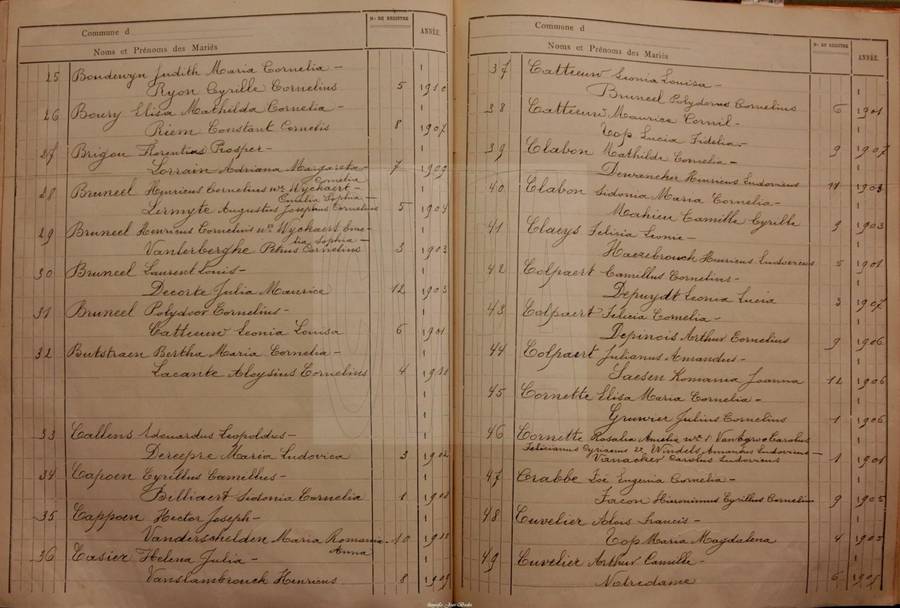 Commune d
Noms et Prénoms des Mariés
Nº DE REGISTRE
ANNÉE.
25 Boudewyn Judith Maria Cornelia —
Ryon Cyrille Cornelius 5 1910
26 Boury Elisa Mathilda Cornelia —
Riem Constant Cornelis 8 1907
27 Brigou Florentias Prosper —
Lorrain Adriana Margareta — 7 1909
Cornelia
28 Bruneel Henricus Cornelius wr Wyckaert —
Emelia Sophia —
Lermyte Augustus Josephus Cornelius 5 1904
29 Bruneel Henricus Cornelius wr Wyckaert Eme-
lia Sophia —
Vanlerberghe Petrus Cornelius 3 1903
30 Bruneel Laurent Louis —
Decorte Julia Maurice 12 1903
31 Bruneel Polydoor Cornelius —
Catteeuw Leonia Louisa 6 1901
32 Butstraen Bertha Maria Cornelia —
Lacante Aloysius Cornelius 4
33 Callens Edouardus Leopoldus —
Derecpre Maria Ludovica 3 1902
34 Capoen Cyrillus Camillus —
Belliaert Sidonia Cornelia 1
35 Cappoen Hector Joseph —
Vanderschelden Maria Romania 10
Anna
36 Casier Helena Julia —
Vanslambrouck Henricus 8 1909
Commune d
Noms et Prénoms des Mariés
Nº DE REGISTRE
ANNÉE.
37 Catteeuw Leonia Louisa —
Bruneel Polydorus Cornelius 6 1901
38 Catteeuw Maurice Cornil —
Top Lucia Fidelia — 9 1907
39 Clabon Mathilde Cornelia —
Dewrencher Henricus Ludovicus 11 1903
40 Clabon Sidonia Maria Cornelia —
Mahieu Camille Cyrille 9 1903
41 Claeys Felicia Leonie —
Haezebrouck Henricus Ludovicus 5 1901
42 Colpaert Camillus Cornelius —
Depuydt Leonia Lucia 3 1907
43 Colpaert Felicia Cornelia —
Depinois Arthur Cornelius 9 1906
44 Colpaert Julianus Amandus —
Saesen Romania Joanna 12 1906
45 Cornette Elisa Maria Cornelia —
Grunvier Julius Cornelius 1 1906
46 Cornette Rosalia Amelia wr 1 Carolus
Felicianus Cyriacus 2e Windels Amandus Ludovicus —
Vanacker Carolus Ludovicus 1 1901
47 Crabbe Zoé Eugenia Cornelia —
Facon Hieronimus Cyrillus Cornelius 9 1905
48 Cuvelier Adons Francis —
Top Maria Magdalena 4
49 Cuvelier Arthur Camille —
Notredame 6